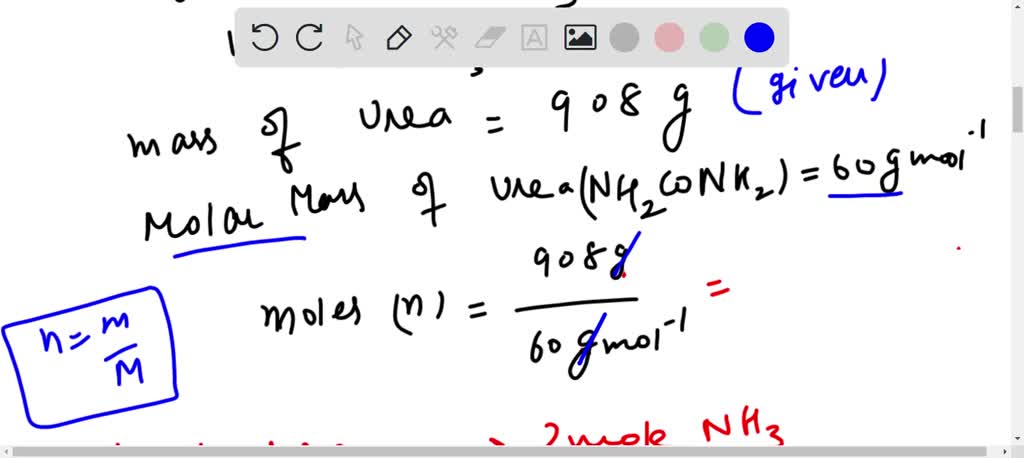 mass of urea = 908 g (given)
Molar Mass of urea (NH2CONH2) = 60 g mol-1
moles (n) = 908 g / 60 g mol-1 =
n = m / M
2 mole NH3